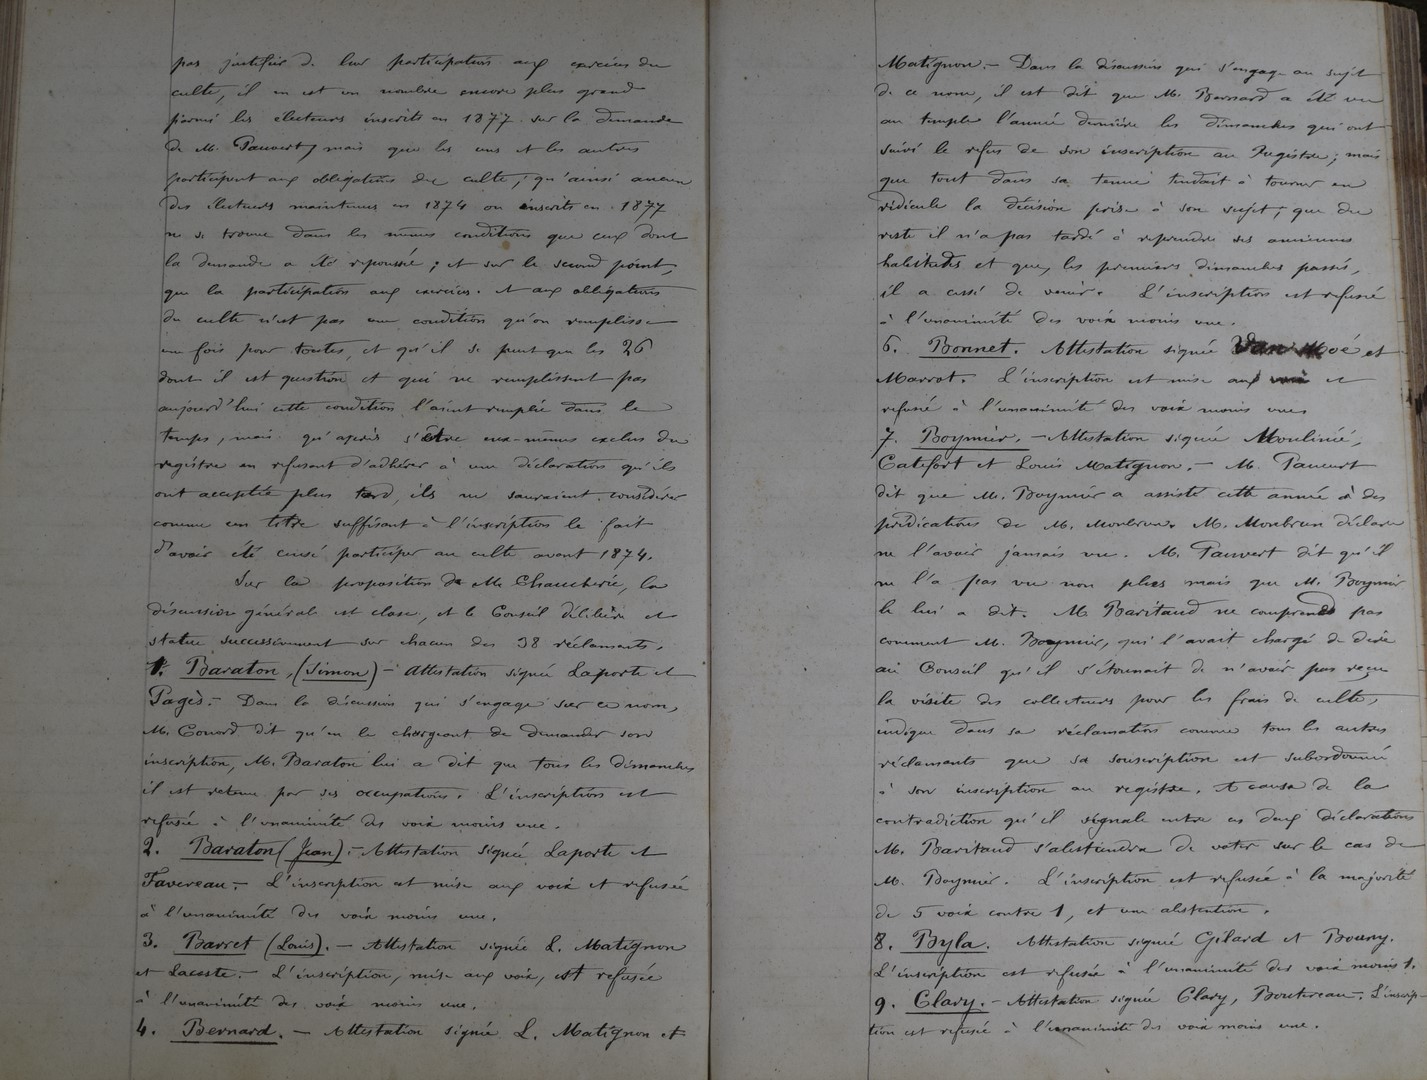 pas justifier de leur participation aux exercices du
culte, il en est un nombre encore plus grand
parmi les électeurs inscrits en 1877 sur la demande
de M. Pauvert, mais que les uns et les autres
participent aux obligations du culte; qu'ainsi aucun
des électeurs maintenus en 1874 ou inscrits en 1877
ne se trouve dans les mêmes conditions que ceux dont
la demande a été repoussée; et sur le second point,
que la participation aux exercices et aux obligations
du culte n'est pas une condition qu'on remplisse
une fois pour toutes, et qu'il se peut que les 26
dont il est question et qui ne remplissent pas
aujourd'hui cette condition l'aient remplie dans le
temps, mais qu'après s'être eux-mêmes exclus du
registre en refusant d'adhérer à une déclaration qu'ils
ont acceptée plus tard, ils ne sauraient considérer
comme un titre suffisant à l'inscription le fait
d'avoir été censé participer au culte avant 1874.
Sur la proposition de M. Chaucherie, la
discussion générale est close, et le Conseil délibère et
statue successivement sur chacun des 38 réclamants.
1. Baraton, (Simon) - Attestation signée Laporte et
Pagès. - Dans la discussion qui s'engage sur ce nom,
M. Conord dit qu'en le chargeant de demander son
inscription, M. Baraton lui a dit que tous les dimanches
il est retenu par ses occupations. L'inscription est
refusée à l'unanimité des voix moins une.
2. Baraton (Jean). - Attestation signée Laporte et
Favereau. - L'inscription est mise aux voix et refusée
à l'unanimité des voix moins une.
3. Barret (Louis). - Attestation signée L. Matignon
et Lacoste. - L'inscription, mise aux voix, est refusée
à l'unanimité des voix moins une.
4. Bernard. - Attestation signée L. Matignon et
Matignon. - Dans la discussion qui s'engage au sujet
de ce nom, il est dit que M. Bernard a été vu
au temple l'année dernière les dimanches qui ont
suivi le refus de son inscription au Registre; mais
que tout dans sa tenue tendait à tourner en
ridicule la décision prise à son sujet; que du
reste il n'a pas tardé à reprendre ses anciennes
habitudes et que, les premiers dimanches passés,
il a cessé de venir. L'inscription est refusée
à l'unanimité des voix moins une.
6. Bonnet. Attestation signée et
Marrot. L'inscription est mise aux voix et
refusée à l'unanimité des voix moins une
7. Boymier. - Attestation signée Moulinié,
Catefort et Louis Matignon. - M. Pauvert
dit que M. Boymier a assisté cette année à des
prédications de M. Monbrun. M. Monbrun déclare
ne l'avoir jamais vu. M. Pauvert dit qu'il
ne l'a pas vu non plus mais que M. Boymier
le lui a dit. M Baritaud ne comprend pas
comment M. Boymier, qui l'avait chargé de dire
au Conseil qu'il s'étonnait de n'avoir pas reçu
la visite des collecteurs pour les frais de culte,
indique dans sa réclamation comme tous les autres
réclamants que sa souscription est subordonnée
à son inscription au registre. A cause de la
contradiction qu'il signale entre ces deux déclarations
M. Baritaud s'abstiendra de voter sur le cas de
M. Boymier. L'inscription est refusée à la majorité
de 5 voix contre 1, et une abstention.
8. Byla. Attestation signée Gilard et Bouny.
L'inscription est refusée à l'unanimité des voix moins 1.
9. Clary. - Attestation signée Clary, Boutereau. - L'inscrip-
tion est refusée à l'unanimité des voix moins une.